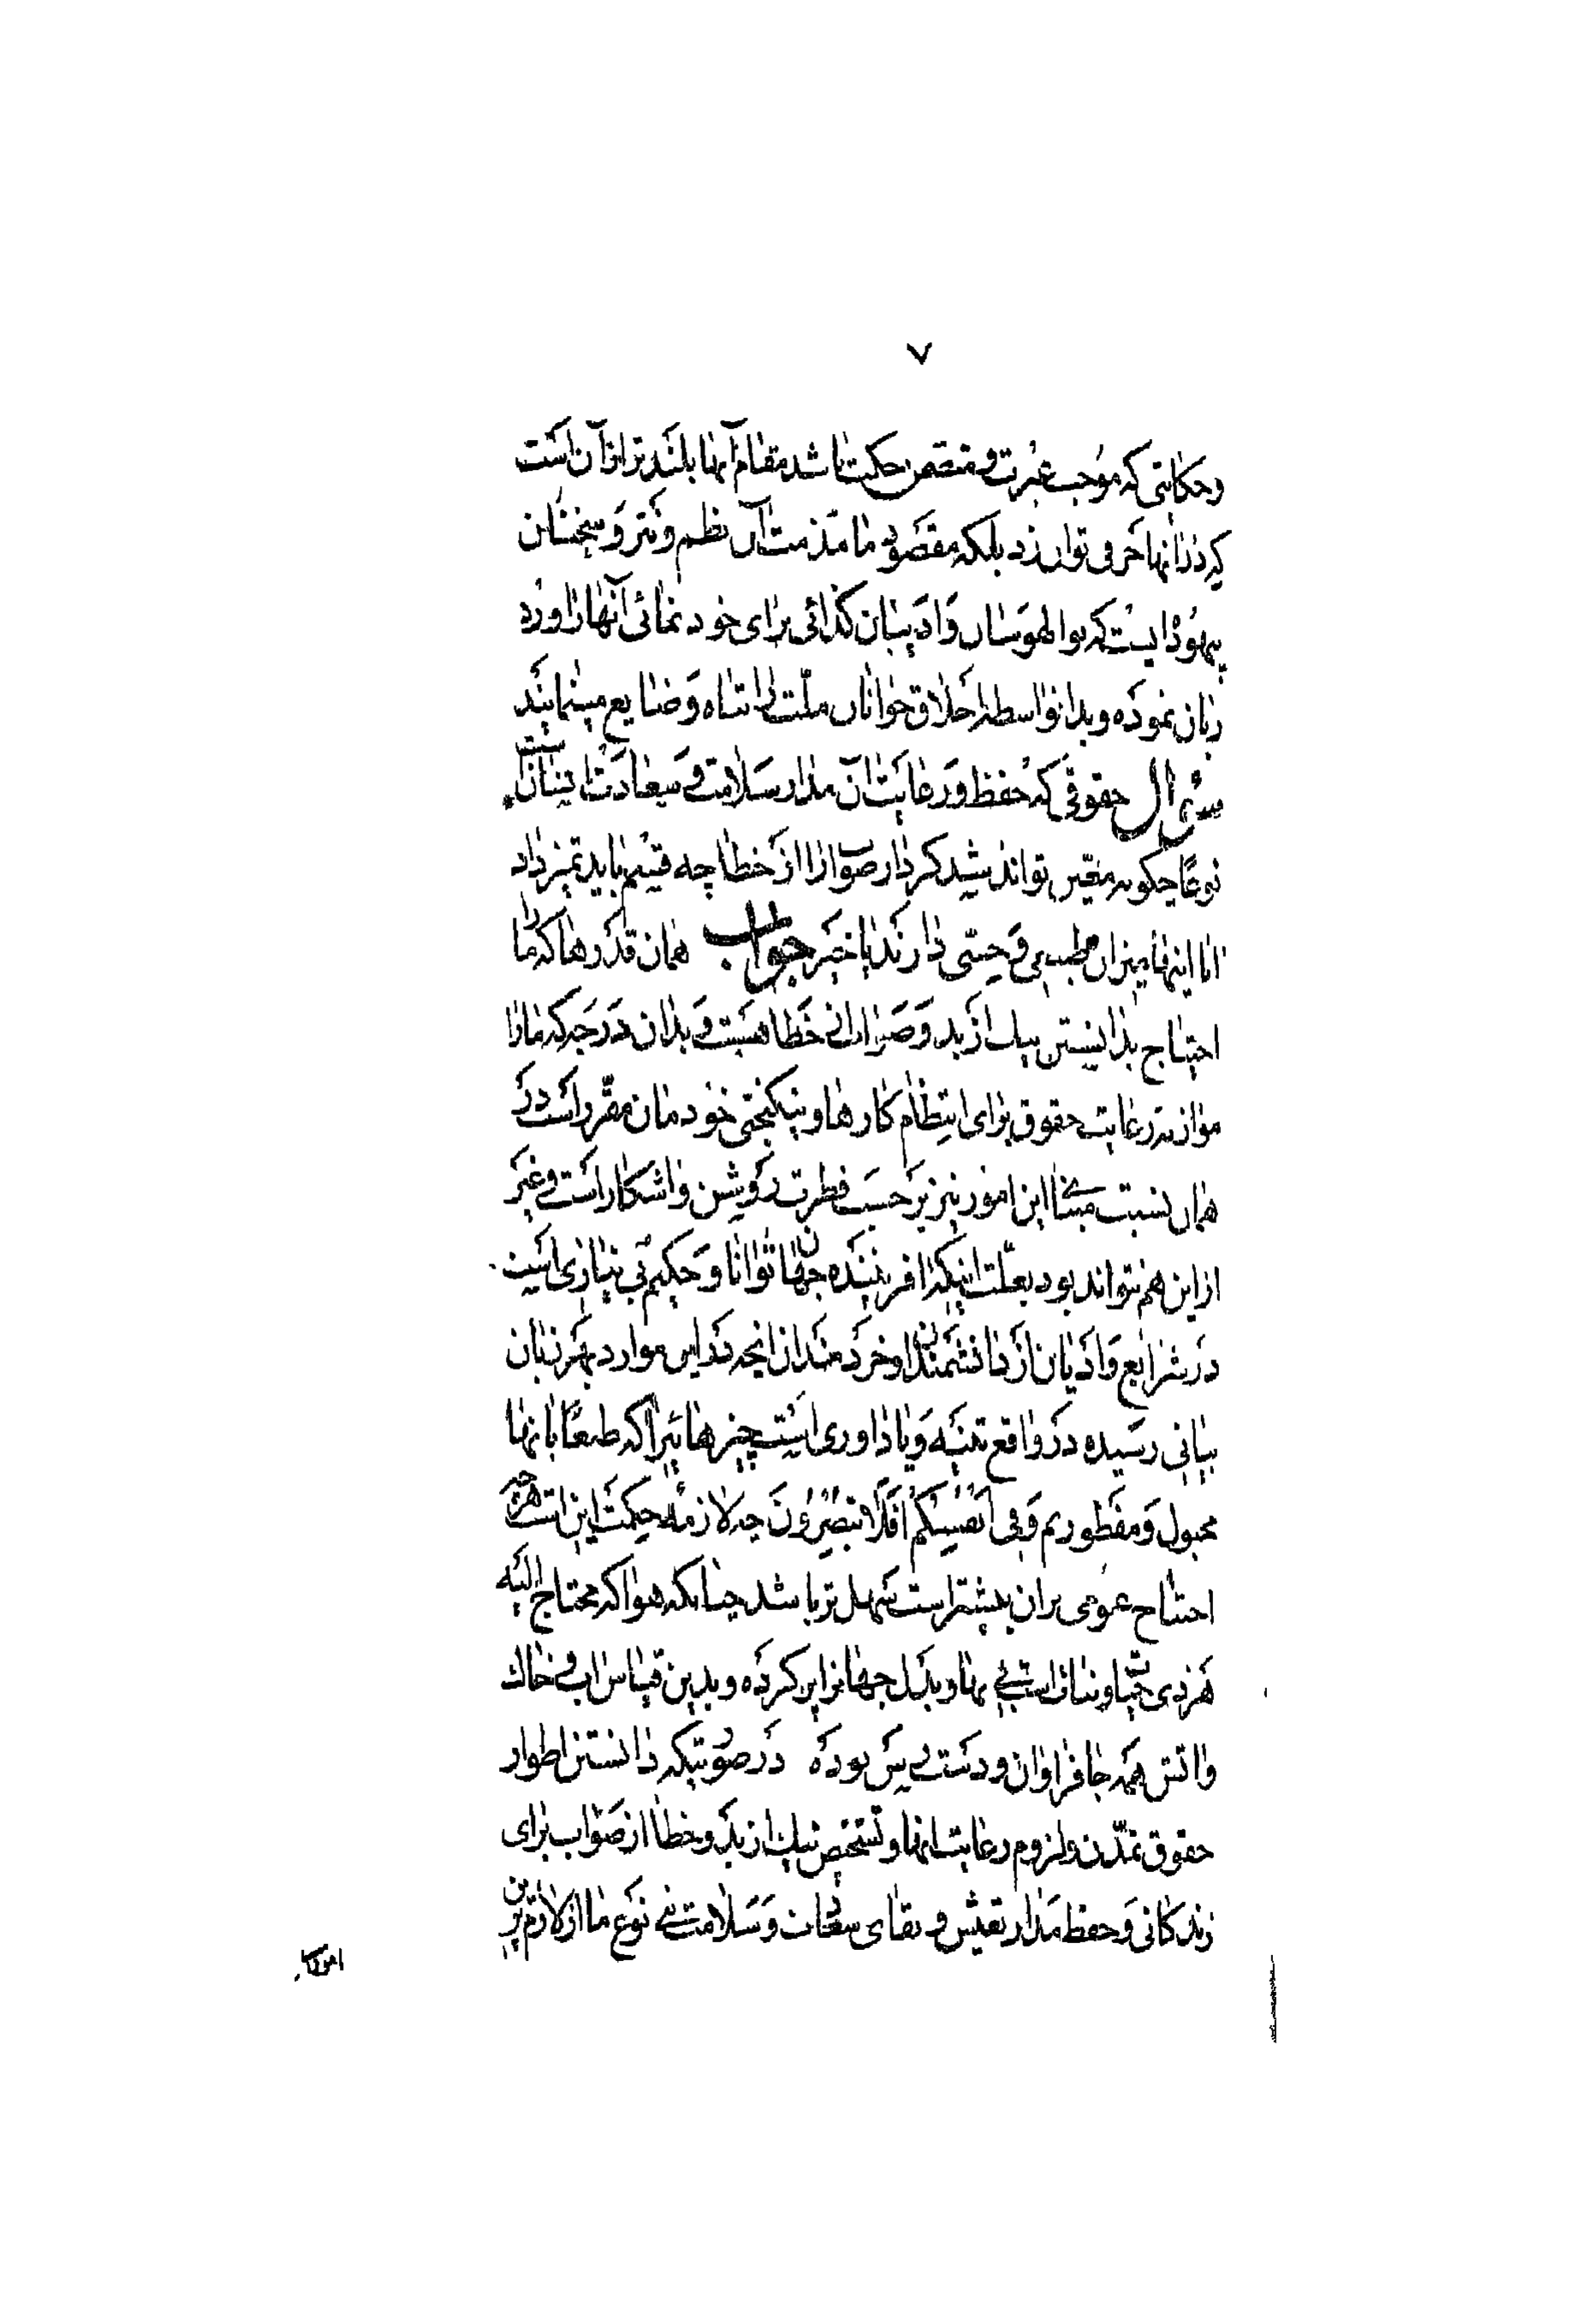 ۷
وحکایتی که موجب عبرت و متضمن حکمت باشد مقام آنها بلندتر از آن است
که در آنها حرفی توان زد بلکه مقصود ما مذمت آن نظم و نثر و سخنان
بیهوده ایست که بوالهوسان و ادیبان کذائی برای خود نمائی آنها را ورد
زبان نموده و بدانواسطه اخلاق جوانان ملّت را تباه و ضایع مینمایند
سئوال حقوقی که حفظ و رعایت آن مدار سلامت و سعادت انسانست
نوعًا چگونه معیّن تواند شد کردار صواب را از خطا چه قسم باید تمیز داد
انا اینها میزان طبیعی و حسّی دارند یا خیر جواب همان قدرها که ما را
احتیاج بدانستن نیک از بد و صواب از خطا هست و بدان درجه که ما را
موازنه رعایت حقوق برای انتظام کارها و نیکبختی خودمان مقرّر است در
همان نسبت مبنا این امور نیز بر حسب فطرت روشن و اشکار است و غیر
از این هم نتواند بود بعلّت اینکه افریننده جهان توانا و حکیم بی نیازی است
در شرایع و ادیان از دانشمندان و خردمندان انچه در این موارد بهر زبان
بیانی رسیده در واقع تنبیه و یاداوری است چیزهائیرا که طبعًا بانها
مجبول و مفطوریم وَفِی اَنْفُسِکُمْ اَفَلَا تُبْصِرُونَ چه لازمهٔ حکمت این است هر چیز
احتیاج عمومی بران بیشتر است سهل تر باشد چنانکه هوا که محتاج الیه
هر ذی حیات و نبات است بی بها و بذل جهانرا پر کرده و بدین قیاس اب و خاک
و اتش همه جا فراوان و دست رس بوده در صورتیکه دانستن اطوار
حقوق تمدّن و لزوم رعایت انها و تشخیص نیک از بد و خطا از صواب برای
زندکانی و حفظ مدار تعیّش و بقای سعادت و سلامت بنی نوع ما از لازم ترین
امورات